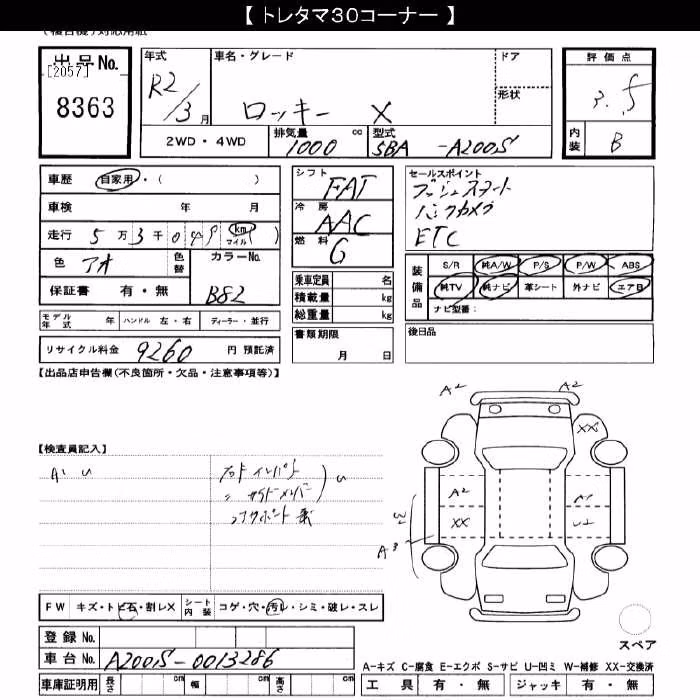 【 トレタマ30コーナー 】
出品No.
[2057]
8363
年式
R2/3月
車名・グレード
ロッキー X
ドア
形状
評価点
3.5
内装 B
2WD・4WD
排気量 1000 cc
型式 5BA -A200S
車歴 自家用・( )
車検 年 月
走行 5万3千049 (km マイル)
色 アオ 色替
カラーNo. B82
保証書 有・無
シフト FAT
冷房 AAC
燃料 G
乗車定員 名
積載量 kg
総重量 kg
書類期限
月 日
セールスポイント
プッシュスタート
バックカメラ
ETC
装備品 S/R 純A/W P/S P/W ABS
純TV 純ナビ 革シート 外ナビ エアB
ナビ型番:
後日品
モデル年式 年 ハンドル 左・右 ディーラー・並行
リサイクル料金 9260 円 預託済
【出品店申告欄(不良箇所・欠品・注意事項等)】
【検査員記入】
A1 U
フロントインパネ
〃 サイドメンバー
コアサポート
U
A2
A2
XX
A2
XX
A1
U1
W3
A3
FW キズ・トビ石・割レX シート内装 コゲ・穴・汚レ・シミ・破レ・スレ
スペア
登録No.
車台No. A200S-0013286
車庫証明用 長さ cm 幅 cm 高さ cm
A-キズ C-腐食 E-エクボ S-サビ U-凹ミ W-補修 XX-交換済
工具 有・無 ジャッキ 有・無